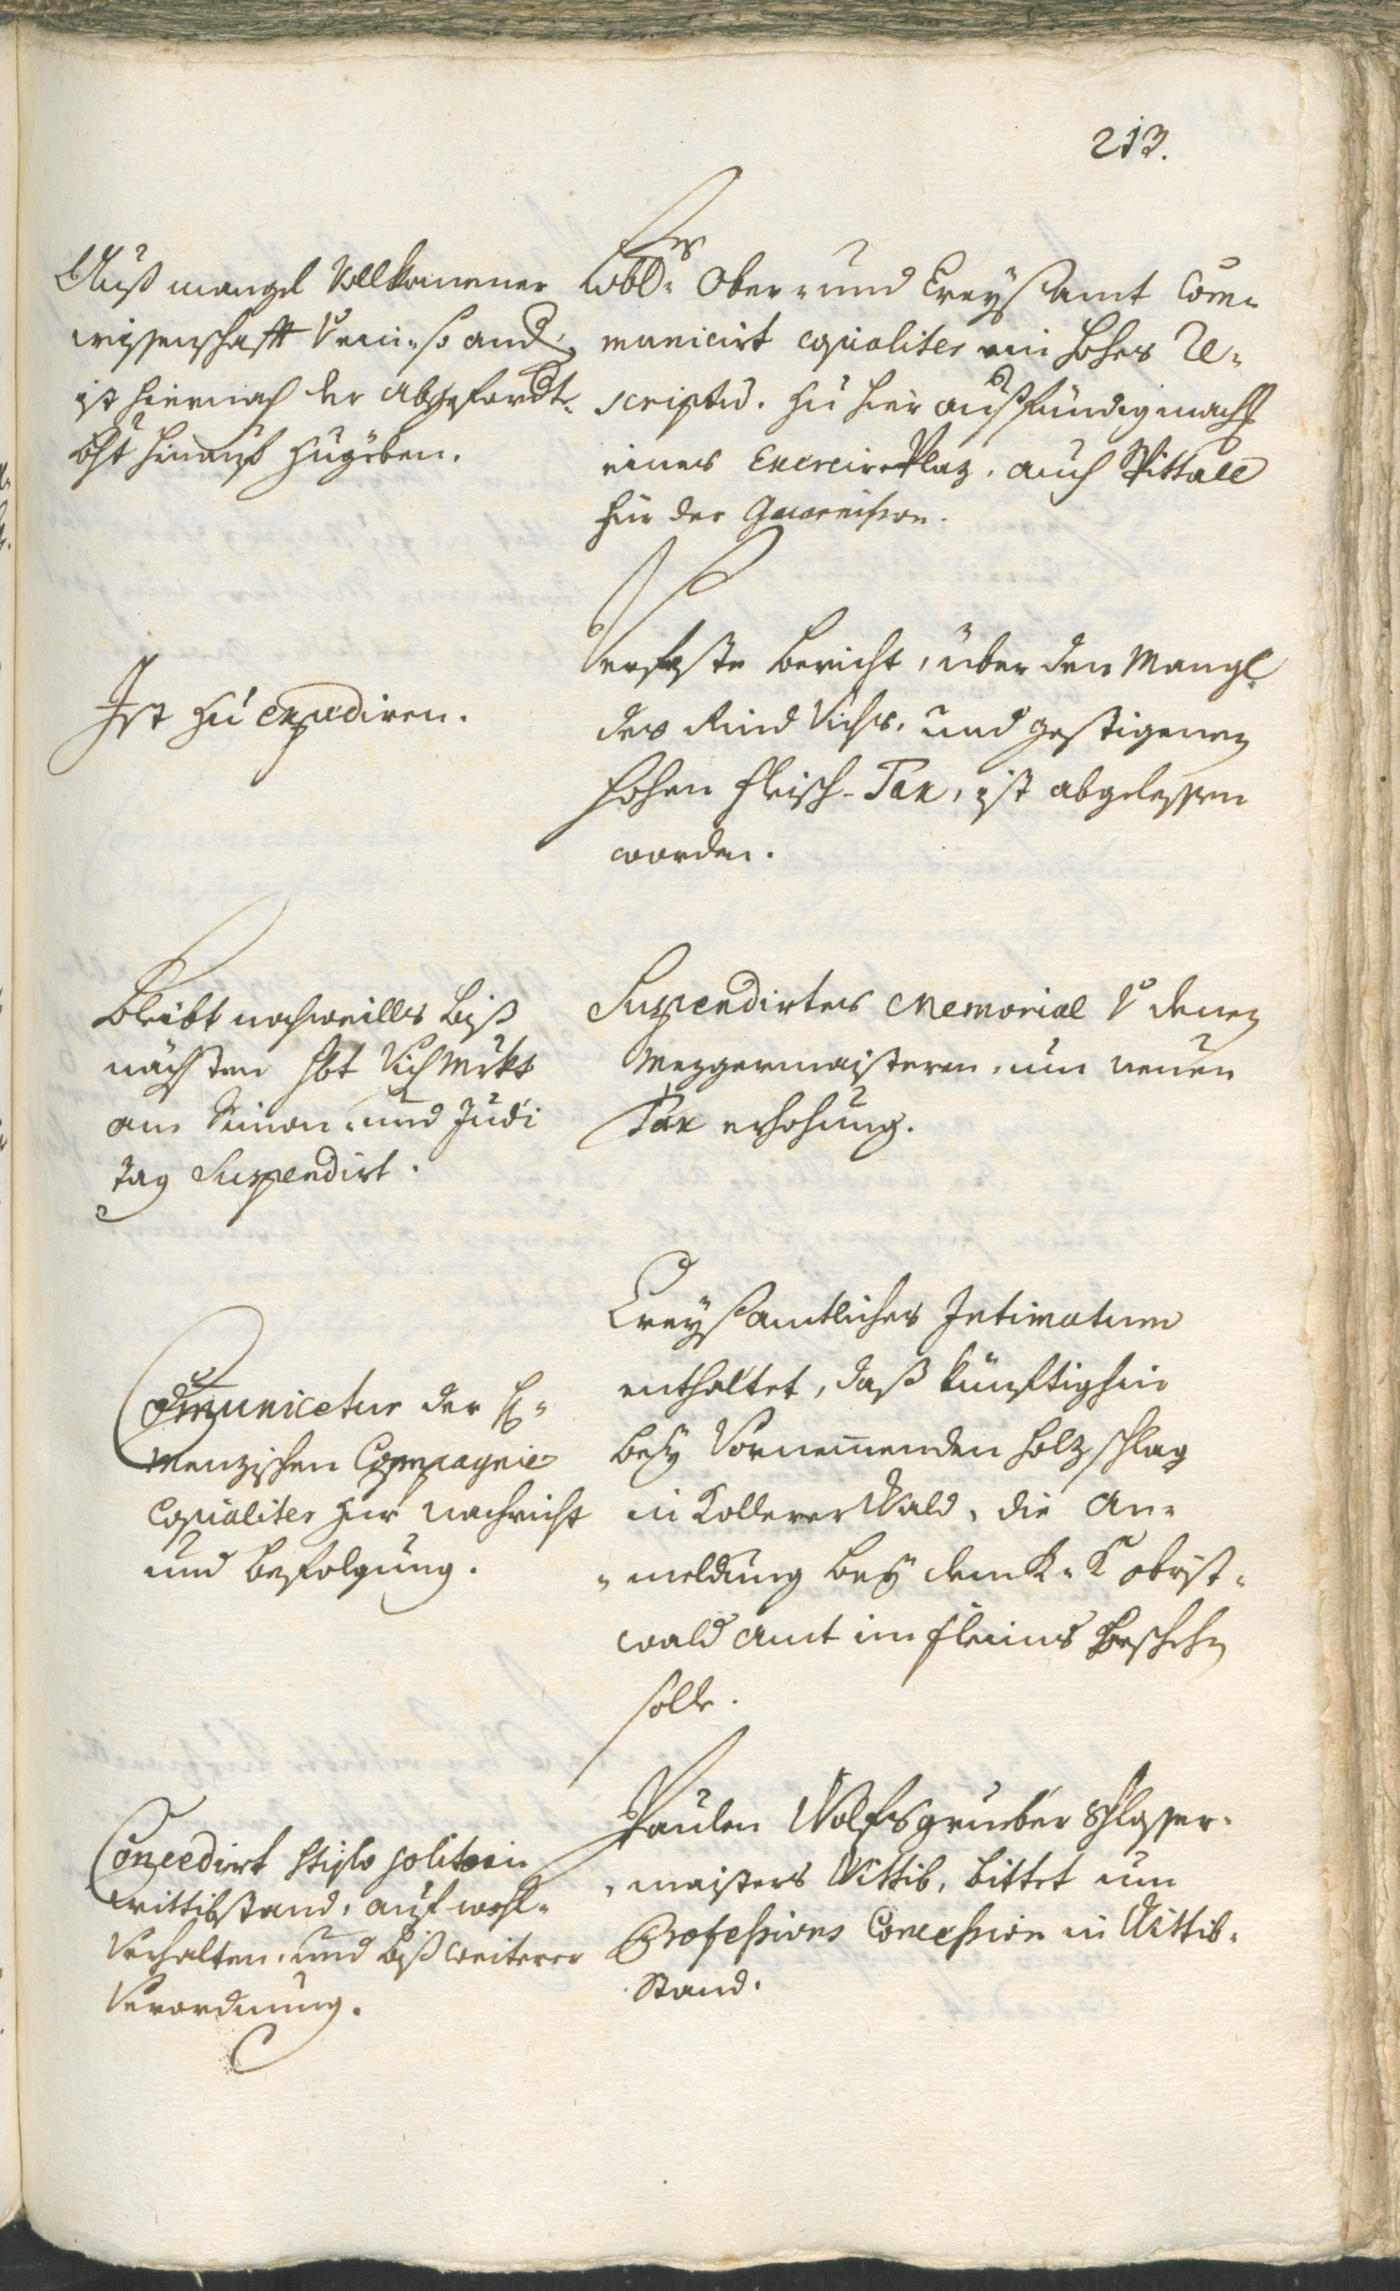 213.
Auß mangel Vollkomener
wissenschafft
ist hiernach der abgefordte
hinauß zugeben.
Es
löbl: Ober- und Creyßamt Com-
municirt copialiter ein hohes Re-
scriptũ. zu hier außfündigmach
eines Exercir-Plaz, auch Spittall
für der Guarnison.
Ist zu expediren.
Verfaste bericht, über den Mangl
des Rind Vichs, und gestigenen
hohen fleisch-Tax, ist abgelessen
worden.
Bleibt nochweillis biß
nächsten hbt Vichmrkt
am Simon- und Judi
tag Suspendirt.
Suspendirtes Memorial v denen
Mezgermaistern, um neuen
Tax erhohung.
Com̃unicetur der
menzischen Compagnie
Copialiter zur nachricht
und befolgung.
Creyßamtliches Intimatum
enthaltet, daß künftighin
bey Vornem̄enden holzschlag
in Kollererwald, die An-
-meldung bey dem K: K obrist-
wald amt im fleims beschehn
solle.
Concedirt stylo solito in
wittibstand, auf wohl-
Verhalten, und biß weiterer
Verordnung.
Paulen Wolfsgrueber Schlosser-
-maisters Wittib, bittet um
Professions Concession in Wittib-
Stand.